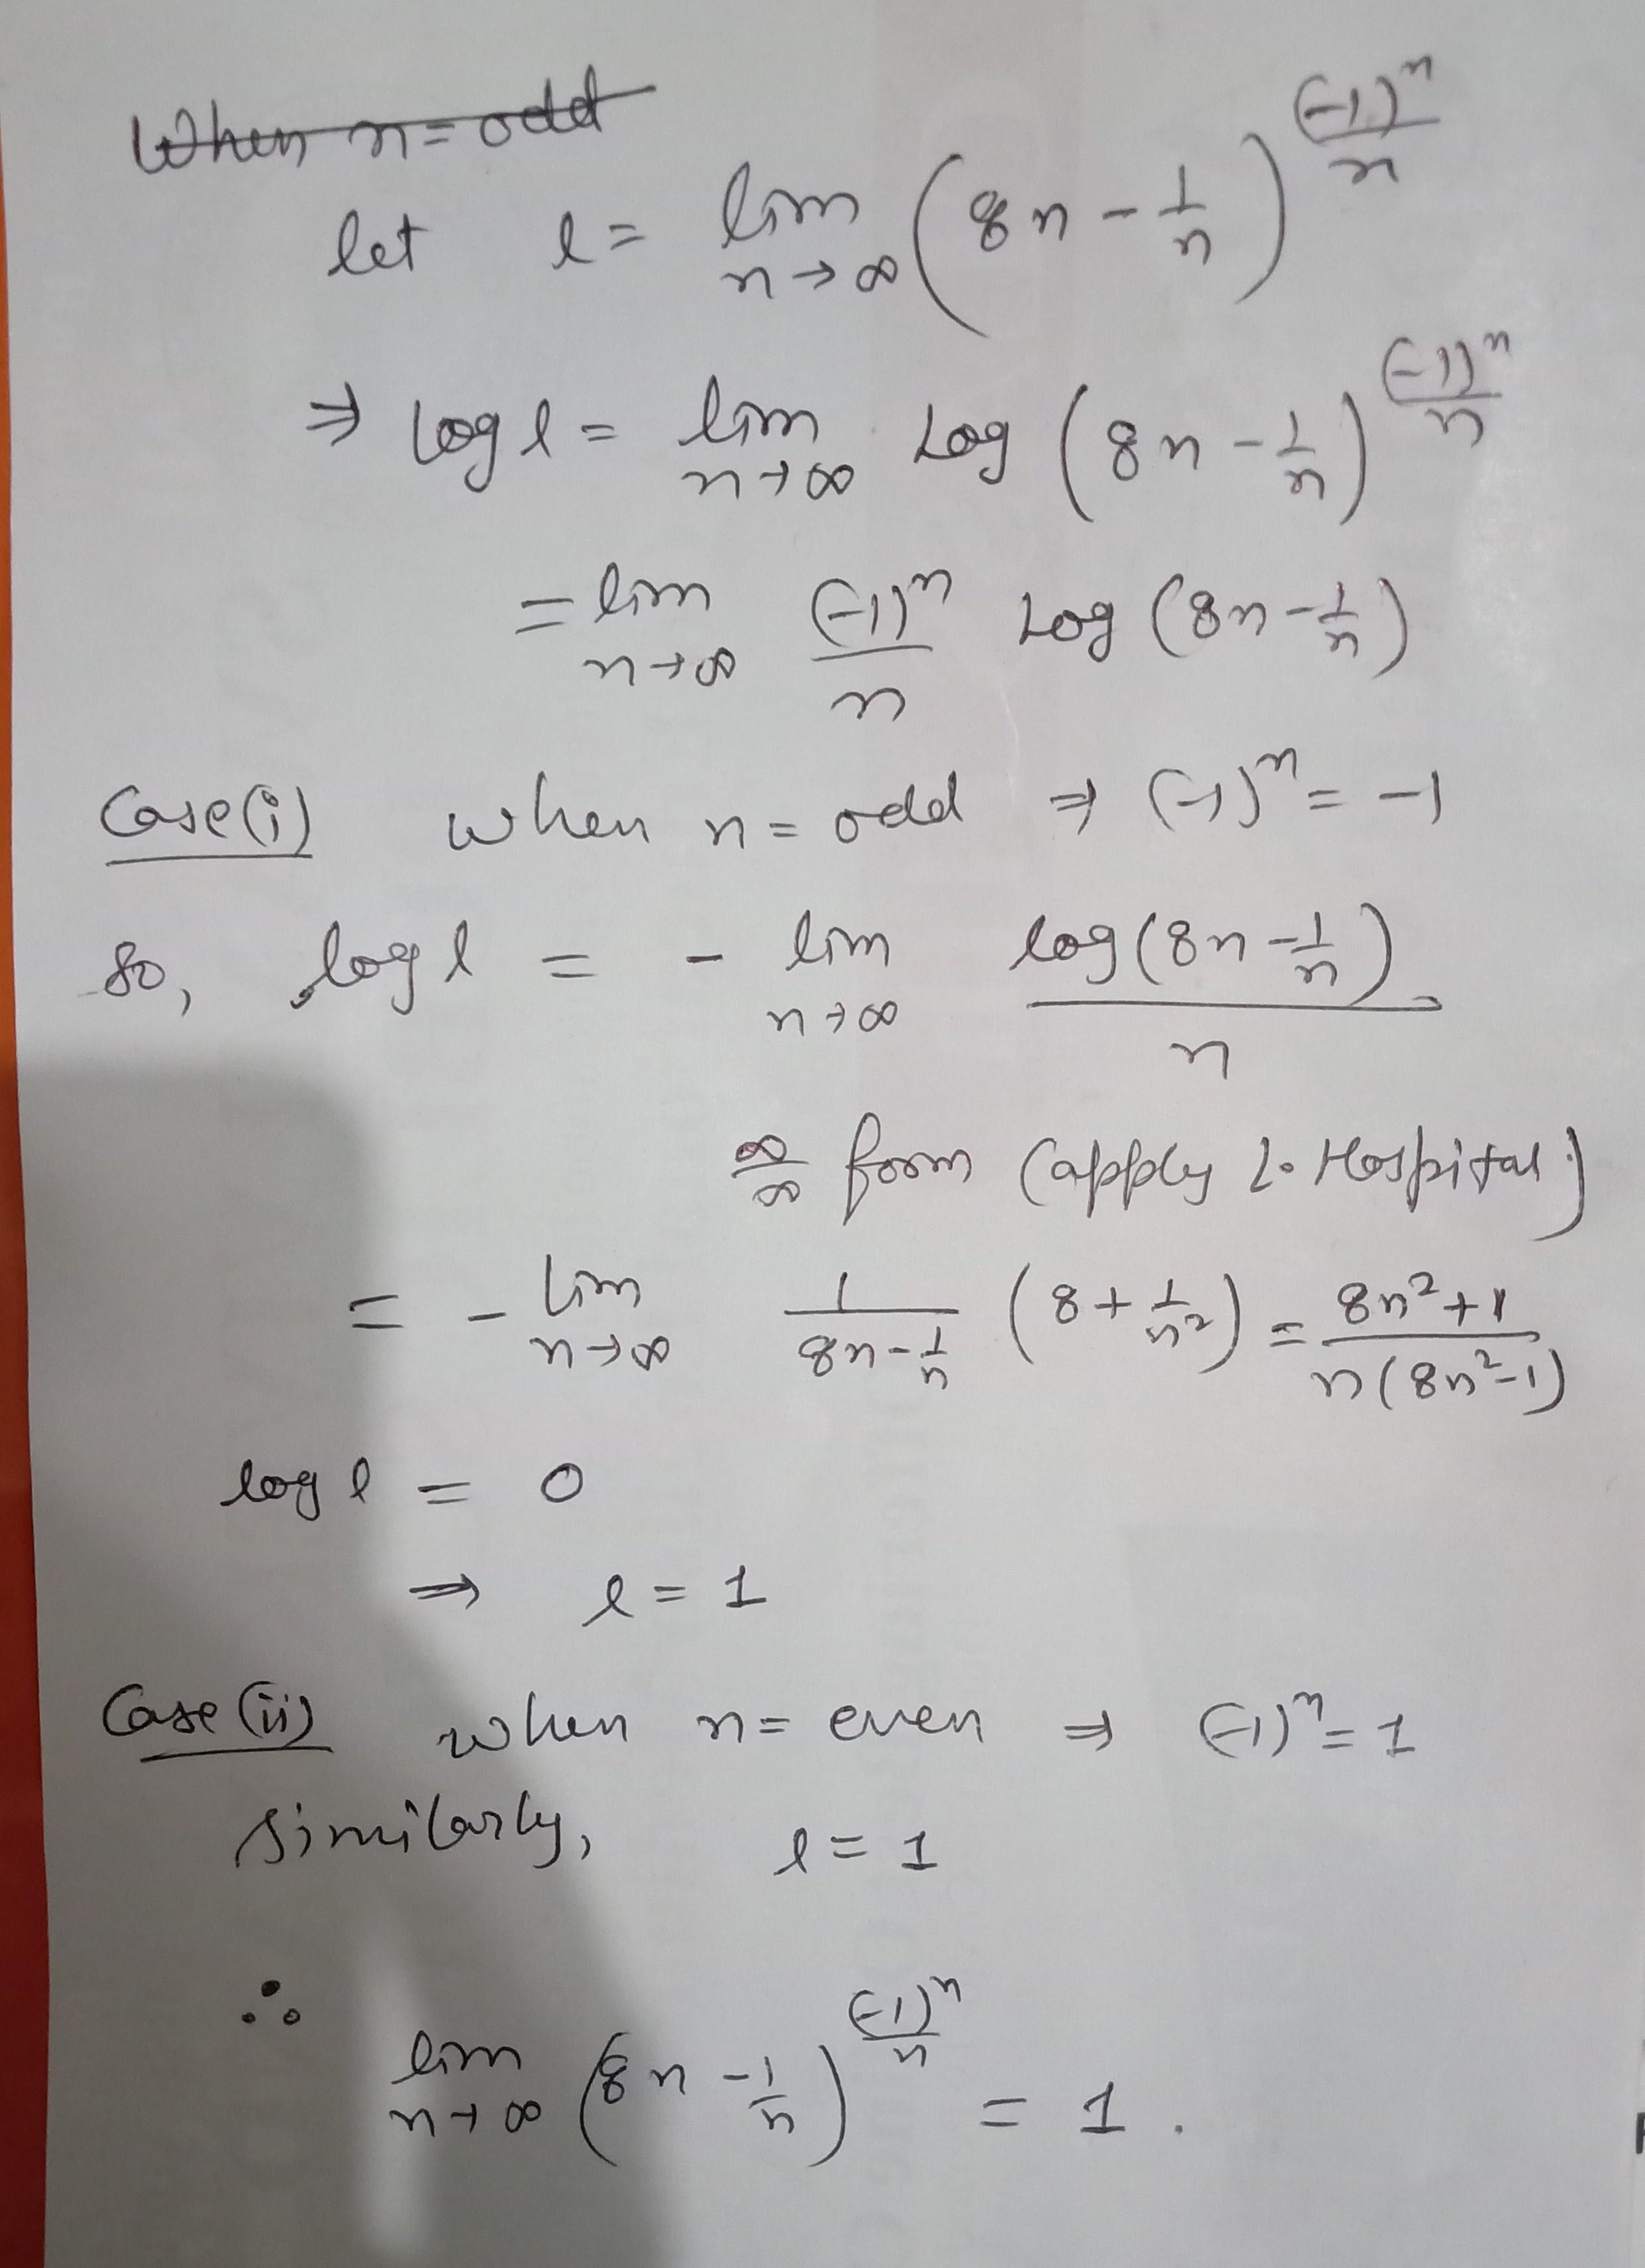 When n = odd
let l = lim n→∞ (8n - 1/n)^((-1)^n/n)
⇒ log l = lim n→∞ Log (8n - 1/n)^((-1)^n/n)
= lim n→∞ (-1)^n/n Log (8n - 1/n)
Case(i) when n = odd ⇒ (-1)^n = -1
So, log l = - lim n→∞ log(8n - 1/n)/n
∞/∞ form (apply L. Hospital)
= - lim n→∞ 1/(8n - 1/n) (8 + 1/n²) = (8n² + 1)/(n(8n² - 1))
log l = 0
⇒ l = 1
Case(ii) when n = even ⇒ (-1)^n = 1
Similarly, l = 1
∴
lim n→∞ (8n - 1/n)^((-1)^n/n) = 1.